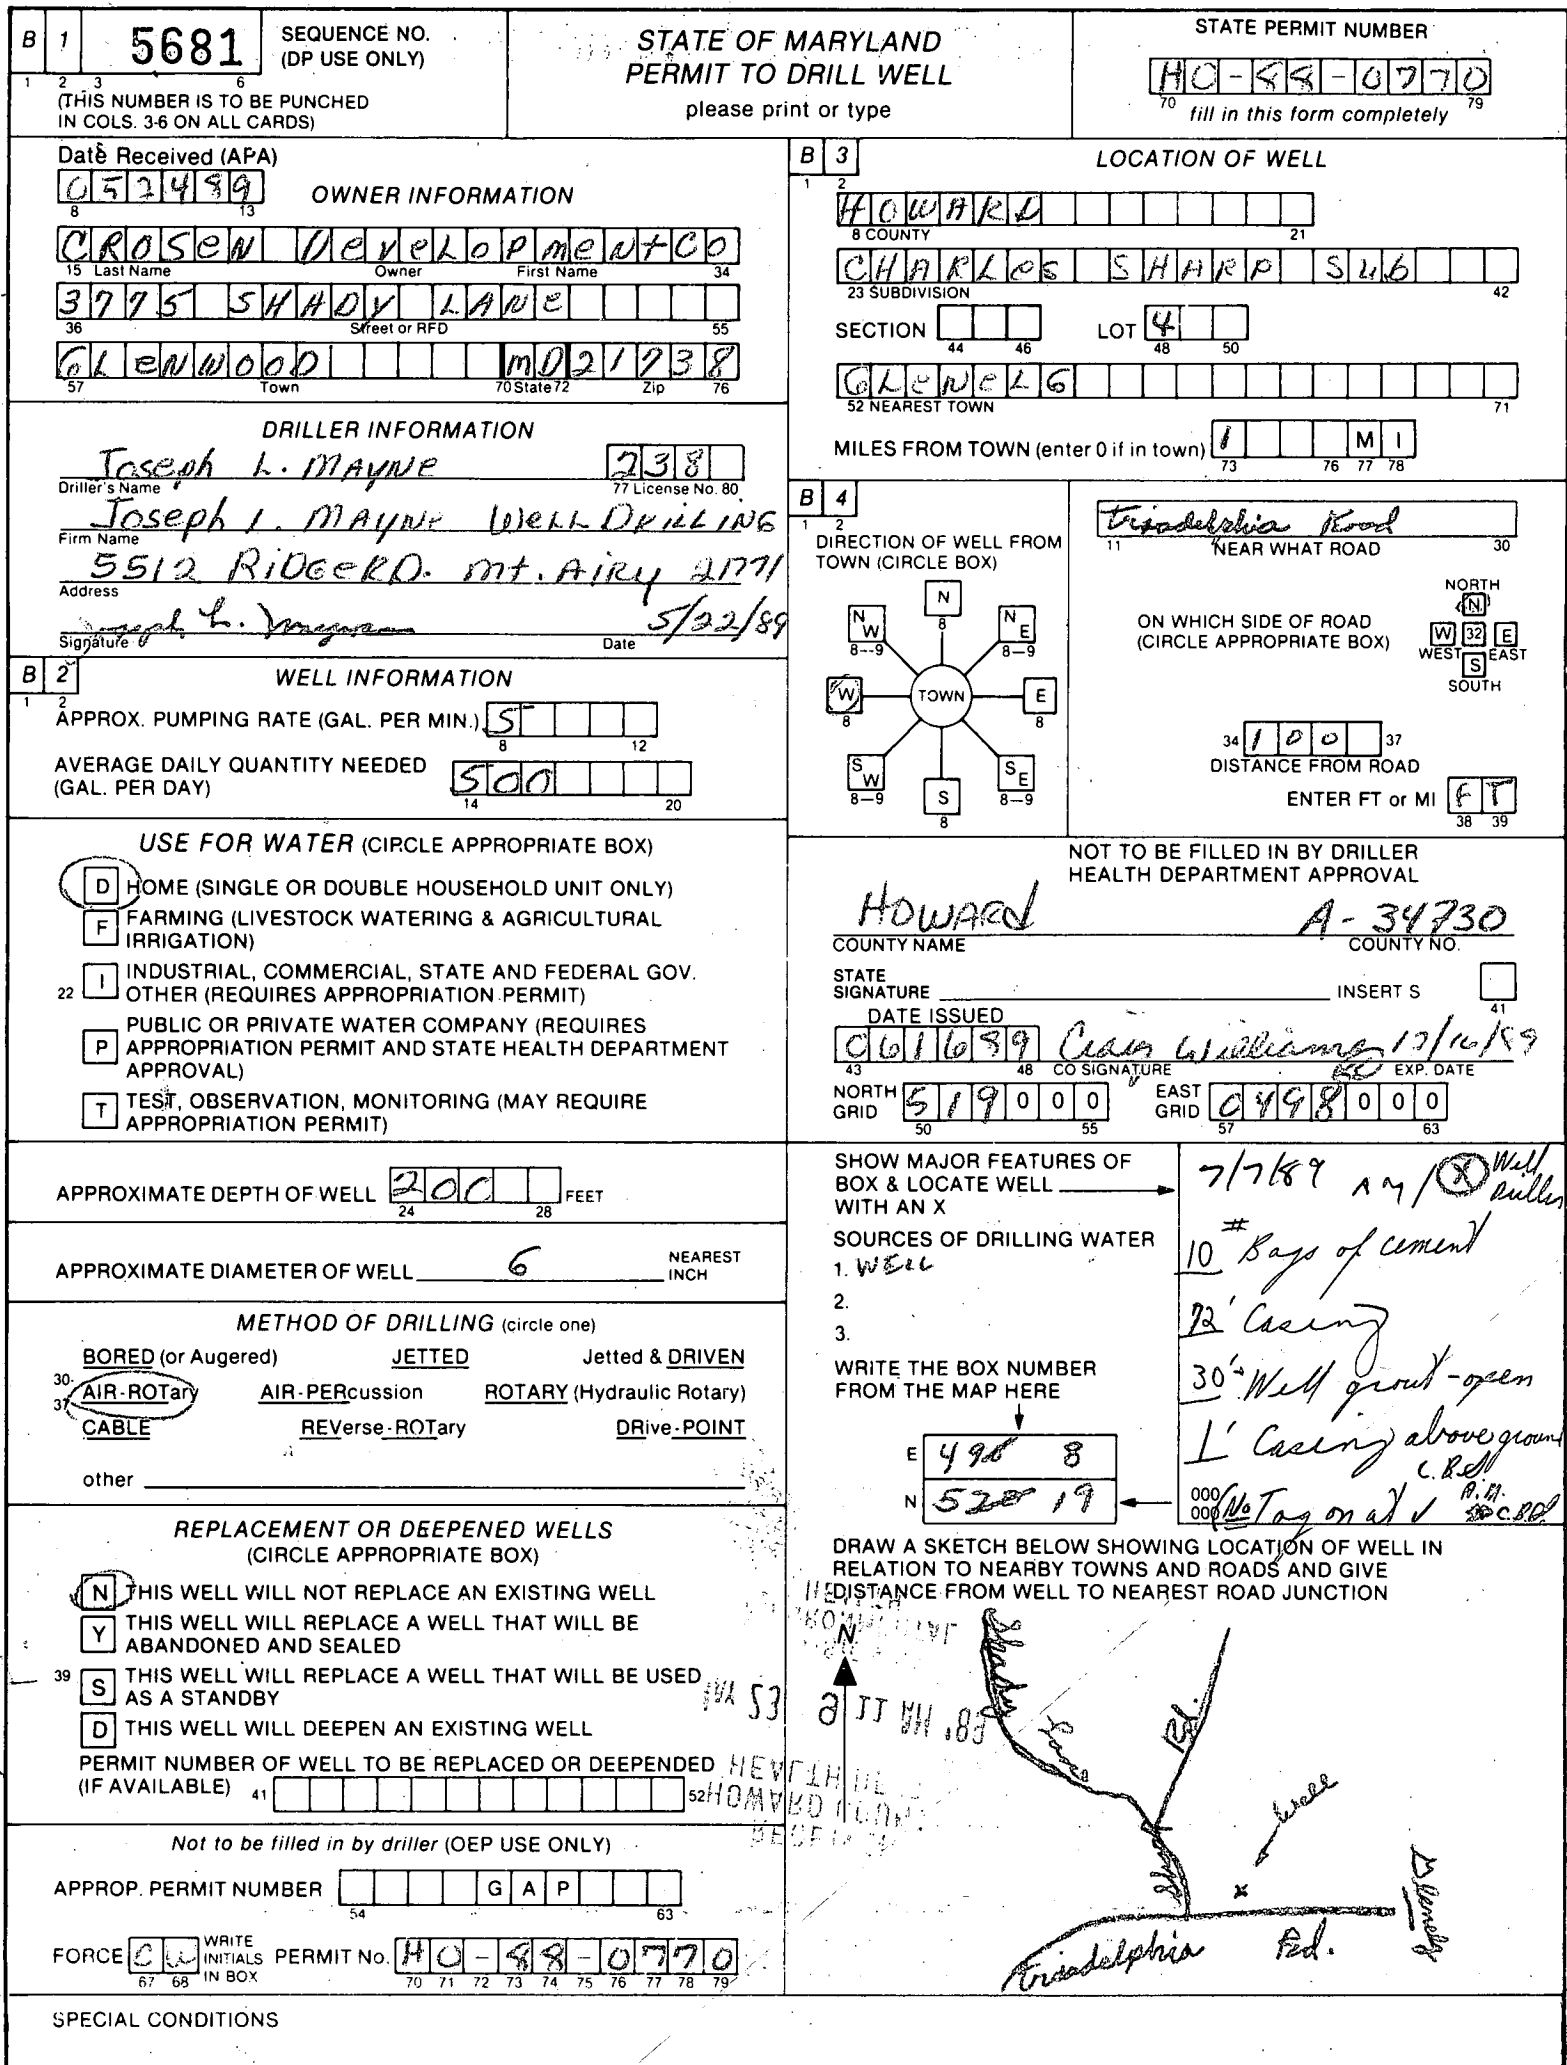 B 1 5681 SEQUENCE NO. (DP USE ONLY)
1 2 3 6
(THIS NUMBER IS TO BE PUNCHED
IN COLS. 3-6 ON ALL CARDS)
STATE OF MARYLAND
PERMIT TO DRILL WELL
please print or type
STATE PERMIT NUMBER
HO-88-0770
70 79
fill in this form completely
Date Received (APA)
052489
8 13
OWNER INFORMATION
CROSEN DeveLOPmeNt CO
15 Last Name Owner First Name 34
3775 SHADY LANe
36 Street or RFD 55
GLeNWOOD mD 21738
57 Town 70 State 72 Zip 76
DRILLER INFORMATION
Joseph L. MAYNe 238
Driller's Name 77 License No. 80
Joseph L. MAYNe WeLL DRiLLING
Firm Name
5512 RiDGe RD. mt. AiRy 21771
Address
Joseph L. Mayne 5/22/89
Signature Date
B 2 WELL INFORMATION
1 2
APPROX. PUMPING RATE (GAL. PER MIN.) 5
8 12
AVERAGE DAILY QUANTITY NEEDED
(GAL. PER DAY) 500
14 20
USE FOR WATER (CIRCLE APPROPRIATE BOX)
D HOME (SINGLE OR DOUBLE HOUSEHOLD UNIT ONLY)
F FARMING (LIVESTOCK WATERING & AGRICULTURAL
IRRIGATION)
22 I INDUSTRIAL, COMMERCIAL, STATE AND FEDERAL GOV.
OTHER (REQUIRES APPROPRIATION PERMIT)
P PUBLIC OR PRIVATE WATER COMPANY (REQUIRES
APPROPRIATION PERMIT AND STATE HEALTH DEPARTMENT
APPROVAL)
T TEST, OBSERVATION, MONITORING (MAY REQUIRE
APPROPRIATION PERMIT)
APPROXIMATE DEPTH OF WELL 200 FEET
24 28
APPROXIMATE DIAMETER OF WELL 6 NEAREST INCH
METHOD OF DRILLING (circle one)
BORED (or Augered) JETTED Jetted & DRIVEN
30-37 AIR-ROTary AIR-PERcussion ROTARY (Hydraulic Rotary)
CABLE REVerse-ROTary DRive-POINT
other
REPLACEMENT OR DEEPENED WELLS
(CIRCLE APPROPRIATE BOX)
N THIS WELL WILL NOT REPLACE AN EXISTING WELL
Y THIS WELL WILL REPLACE A WELL THAT WILL BE
ABANDONED AND SEALED
39 S THIS WELL WILL REPLACE A WELL THAT WILL BE USED
AS A STANDBY
D THIS WELL WILL DEEPEN AN EXISTING WELL
PERMIT NUMBER OF WELL TO BE REPLACED OR DEEPENDED
(IF AVAILABLE) 41 52
Not to be filled in by driller (OEP USE ONLY)
APPROP. PERMIT NUMBER G A P
54 63
FORCE CW WRITE INITIALS IN BOX PERMIT No. HO-88-0770
67 68 70 71 72 73 74 75 76 77 78 79
SPECIAL CONDITIONS
B 3 LOCATION OF WELL
1 2
HOWARD
8 COUNTY 21
CHARLes SHARP Sub
23 SUBDIVISION 42
SECTION LOT 4
44 46 48 50
GLeNeLG
52 NEAREST TOWN 71
MILES FROM TOWN (enter 0 if in town) 1 M I
73 76 77 78
B 4
1 2
DIRECTION OF WELL FROM
TOWN (CIRCLE BOX)
N 8
NW 8--9
NE 8-9
W 8
TOWN
E 8
SW 8-9
SE 8-9
S 8
Triadelphia Road
11 NEAR WHAT ROAD 30
ON WHICH SIDE OF ROAD
(CIRCLE APPROPRIATE BOX)
NORTH
N
W 32 E
WEST EAST
S
SOUTH
34 100 37
DISTANCE FROM ROAD
ENTER FT or MI FT
38 39
NOT TO BE FILLED IN BY DRILLER
HEALTH DEPARTMENT APPROVAL
HOWARD A-34730
COUNTY NAME COUNTY NO.
STATE
SIGNATURE INSERT S
41
DATE ISSUED
061689 Craig Williams 12/16/89
43 48 CO SIGNATURE EXP. DATE
NORTH GRID 519000 EAST GRID 0498000
50 55 57 63
SHOW MAJOR FEATURES OF
BOX & LOCATE WELL
WITH AN X
SOURCES OF DRILLING WATER
1. WELL
2.
3.
WRITE THE BOX NUMBER
FROM THE MAP HERE
E 498 8
N 520 19
7/7/89 AM/ X Well Driller
10 # Bags of cement
72' Casing
30' Well grout-open
1' Casing above ground
000
000 No Tag on at
DRAW A SKETCH BELOW SHOWING LOCATION OF WELL IN
RELATION TO NEARBY TOWNS AND ROADS AND GIVE
DISTANCE FROM WELL TO NEAREST ROAD JUNCTION
N
MAY 23 9 11 AM '89
Shady Lane
Rd.
well
x
Glenelg
Triadelphia Rd.